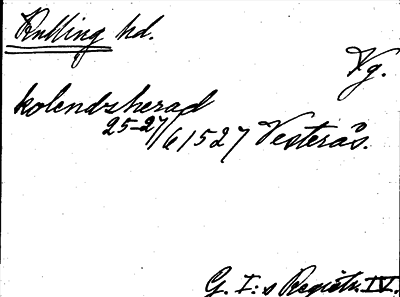 Kulling hd.
Vg.
kolendzherad
25-27/6 1527 Vesterås.
G. I:s Registr. IV.